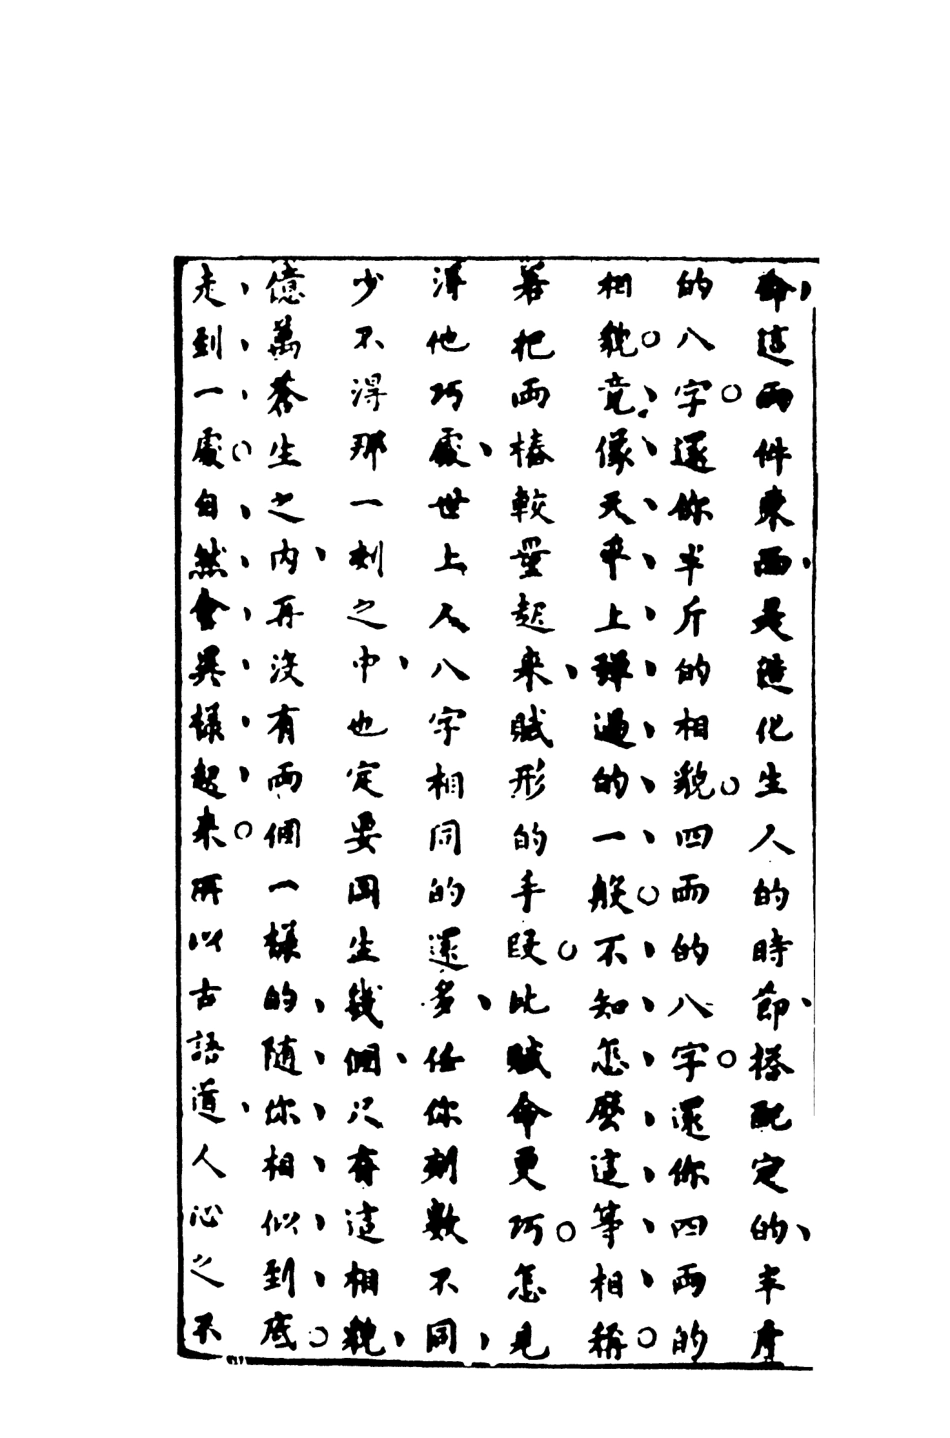 命這兩件東西是造化生人的時節搭配定的半斤
的八字還你半斤的相貌四兩的八字還你四兩的
相貌竟像天平上彈過的一般不知怎麼這等相稱
若把兩樁較量起來賦形的手段比賦命更巧怎見
得他巧處世上人八字相同的還多任你刻數不同
少不得那一刻之中也定要同生幾個只有這相貌
億萬蒼生之內再沒有兩個一樣的随你相似到底
走到一處自然會異樣起來所以古語道人心之不